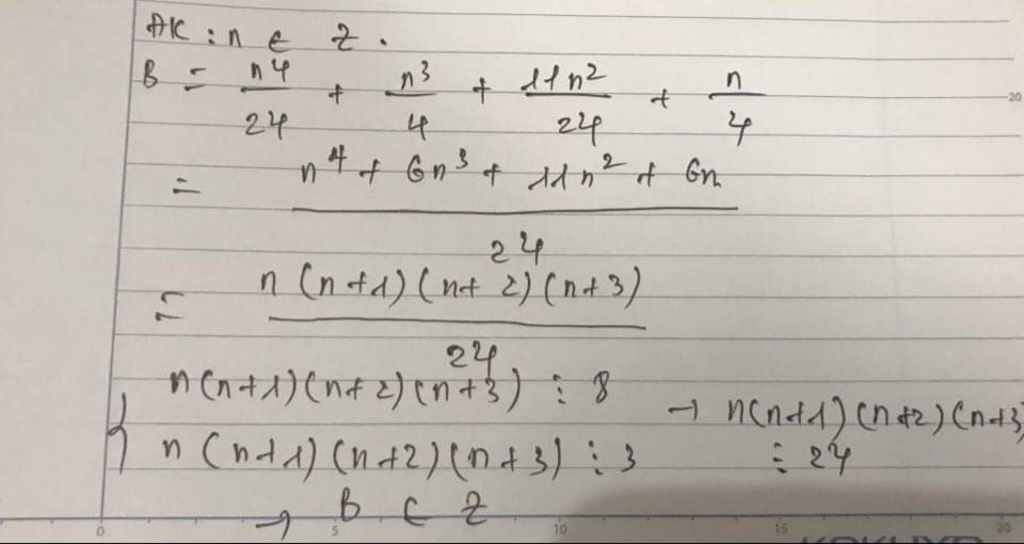 ĐK : n ∈ Z.
B = n⁴/24 + n³/4 + 11n²/24 + n/4
= (n⁴ + 6n³ + 11n² + 6n)/24
= n(n+1)(n+2)(n+3)/24
{ n(n+1)(n+2)(n+3) ⋮ 8
n(n+1)(n+2)(n+3) ⋮ 3
→ n(n+1)(n+2)(n+3)
⋮ 24
→ B ∈ Z
0 5 10 15 20
20